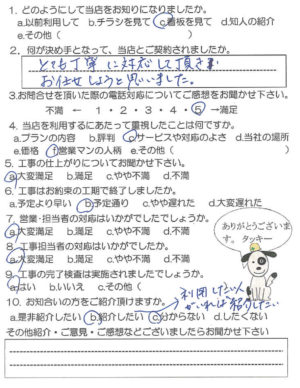 1. どのようにして当店をお知りになりましたか。
a.以前利用して b.チラシを見て c.看板を見て d.知人の紹介
e.その他(　　　　　)
2. 何が決め手となって、当店とご契約されましたか。
とても丁寧に対応して頂き、
お任せしようと思いました。
3.お問合せを頂いた際の電話対応についてご感想をお聞かせ下さい。
不満 ← 1・2・3・4・5 →満足
4. 当店を利用するにあたって重視したことは何ですか。
a.プランの内容 b.評判 c.サービスや対応のよさ d.当社の場所
e.価格 f.営業マンの人柄 e.その他(
5. 工事の仕上がりについてお聞かせ下さい。
a.大変満足 b.満足 c.やや不満 d.不満
6. 工事はお約束の工期で終了しましたか。
a.予定より早い b.予定通り c.やや遅れた d.大変遅れた
7. 営業・担当者の対応はいかがでしたでしょうか。
a.大変満足 b.満足 c.やや不満 d.不満
8. 工事担当者の対応はいかがでしたか。
a.大変満足 b.満足 c.やや不満 d.不満
ありがとうございま
す。タッキー
9. 工事の完了検査は実施されましたでしょうか。
a.はい b.いいえ c.その他(
10. お知合いの方をご紹介頂けますか。
利用したい人
がいれば紹介したい
a.是非紹介したい b.紹介したい c.分からない d.したくない
その他紹介・ご意見・ご感想などございましたらお聞かせ下さい